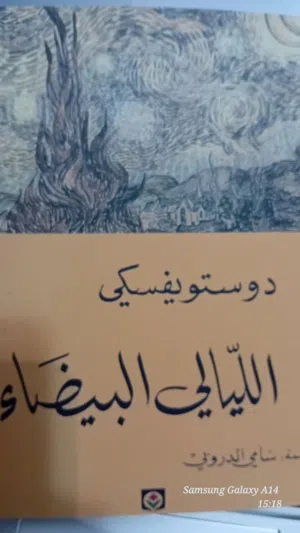 دوستويفسكي
الليالي البيضاء
سامي الدروبي
Samsung Galaxy A14
15:18